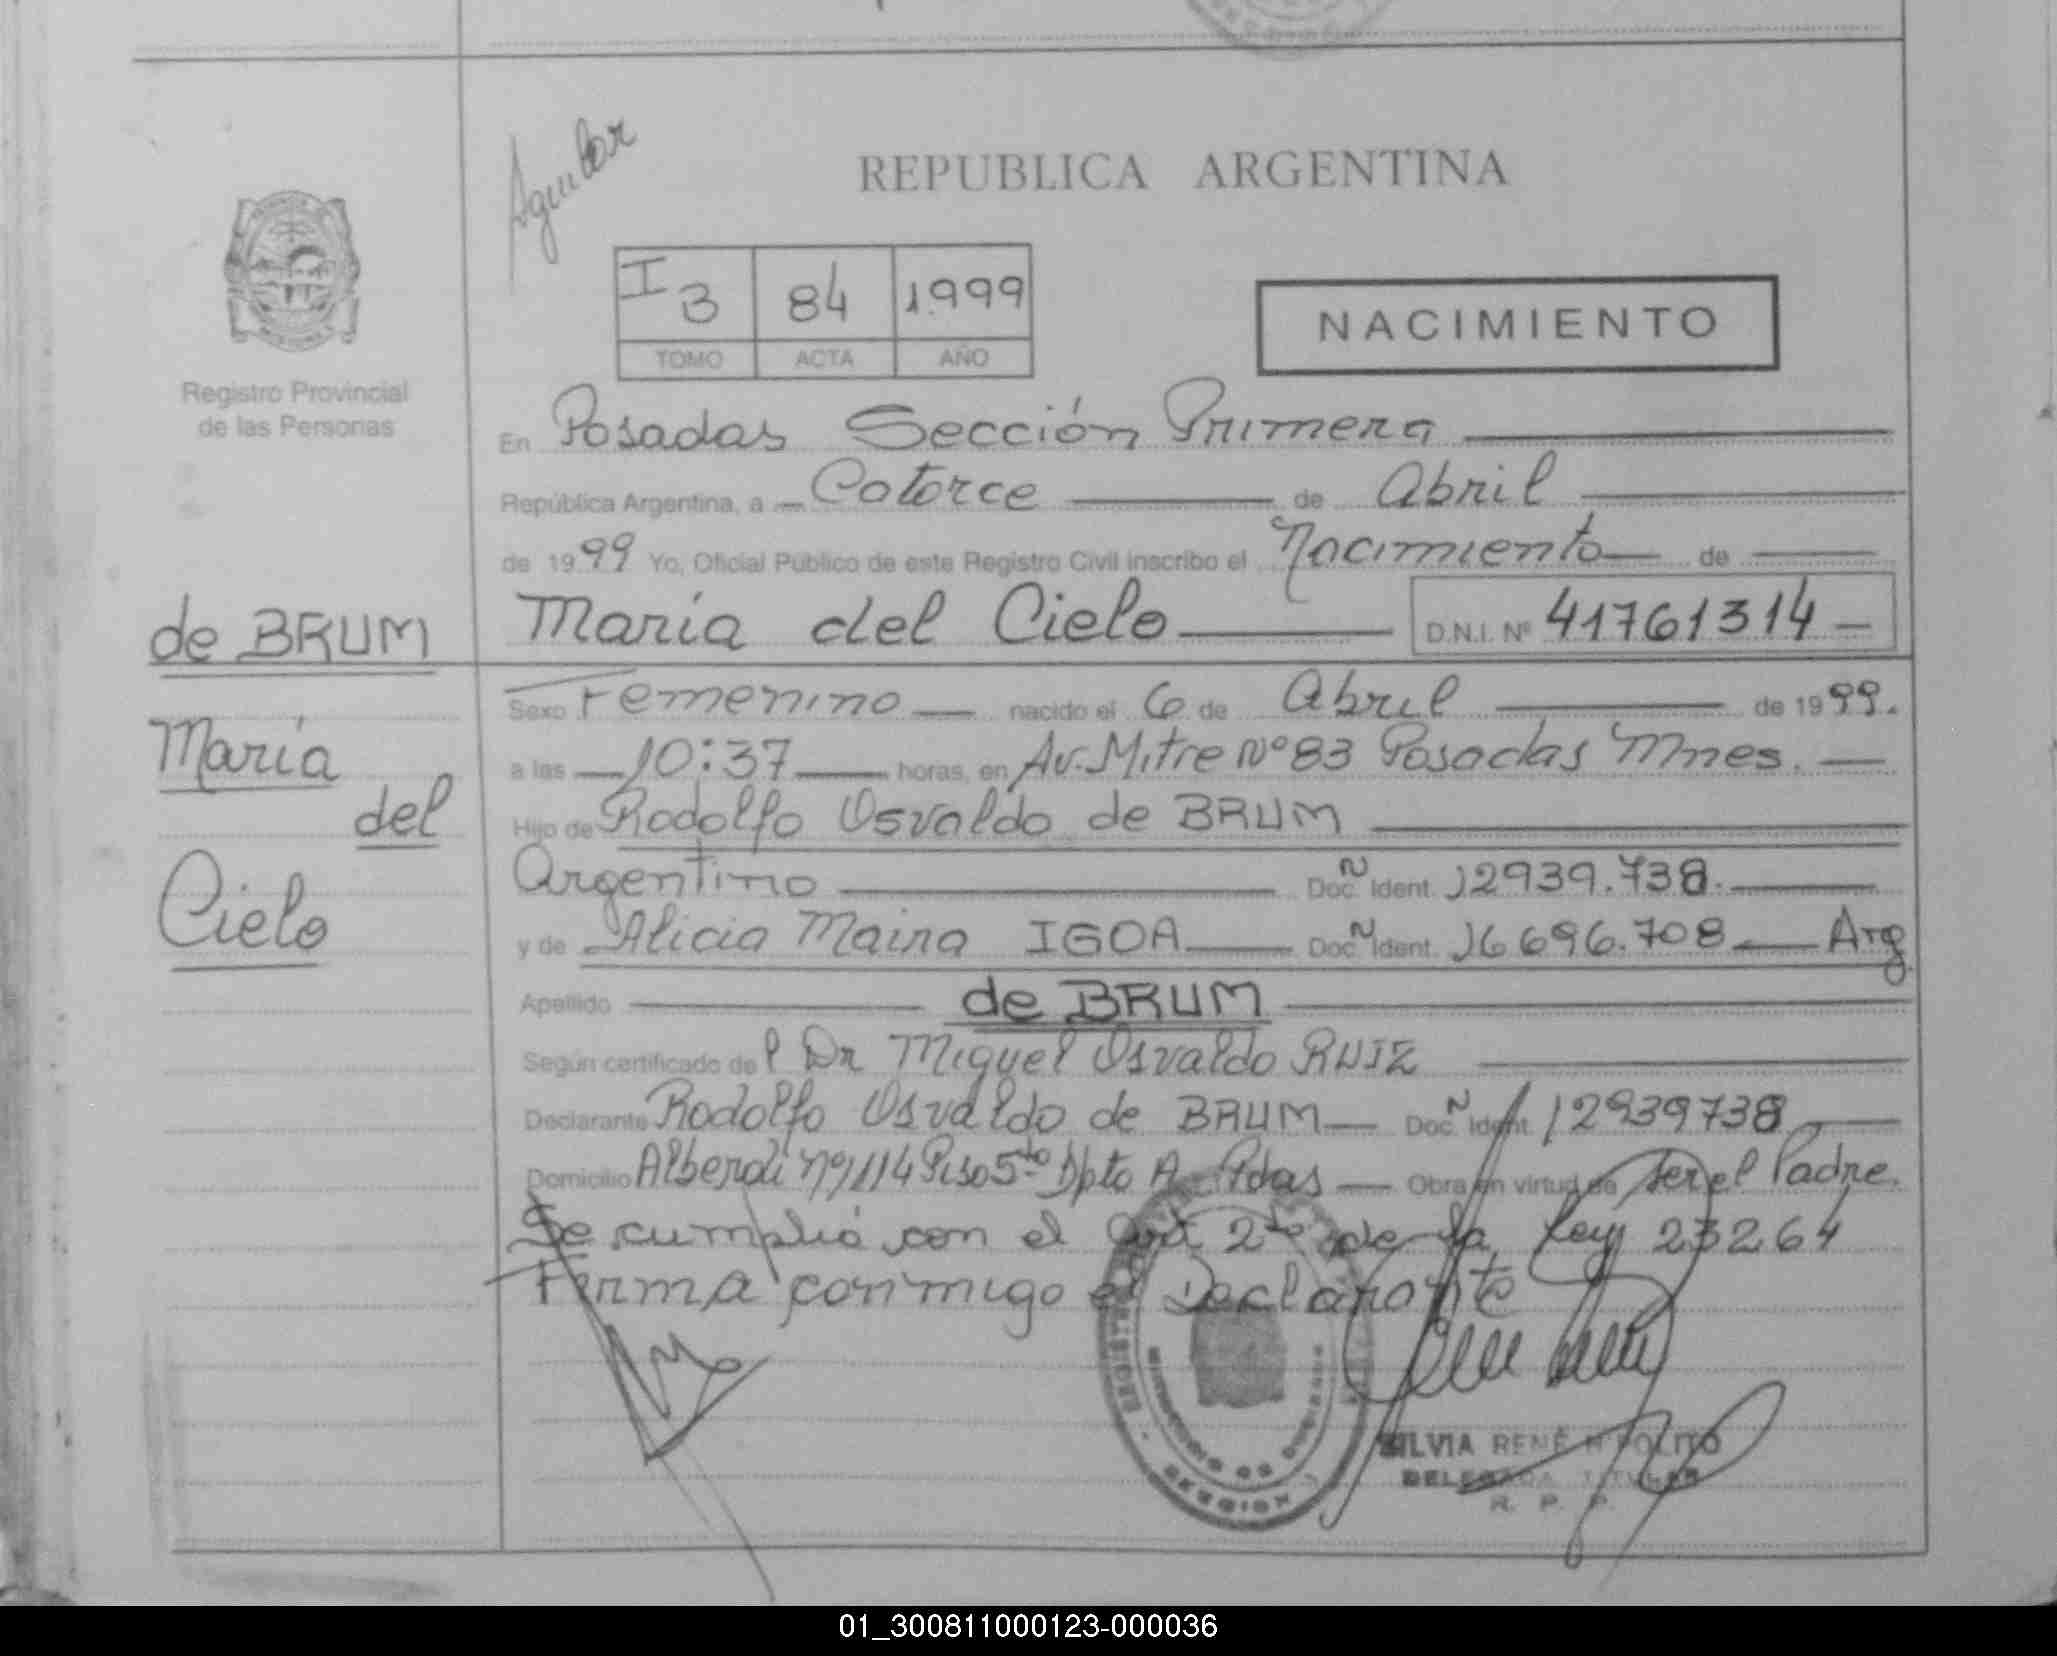 Aguilar
REPUBLICA ARGENTINA
I 3 84 1.999
TOMO ACTA AÑO
NACIMIENTO
Registro Provincial
de las Personas
En Posadas Sección Primera
República Argentina, a Catorce de Abril
de 1999 Yo, Oficial Público de este Registro Civil inscribo el Nacimiento de
María del Cielo D.N.I. Nº 41761314
de BRUM
María
del
Cielo
Sexo Femenino nacido el 6 de Abril de 1999.
a las 10:37 horas, en Av. Mitre Nº 83 Posadas Mnes.
Hijo de Rodolfo Osvaldo de BRUM
Argentino Doc. N Ident. 12939.738.
y de Alicia Maina IGOA Doc. N Ident. 16696.708 Arg
Apellido de BRUM
Según certificado del Dr Miguel Osvaldo RUIZ
Declarante Rodolfo Osvaldo de BRUM Doc. N Ident. 12939738
Domicilio Alberdi Nº 114 Piso 5to Dpto A Pdas Obra en virtud de ser el Padre.
Se cumplió con el Art. 2do de la Ley 23264
Firma conmigo el Declarante
SILVIA RENÉ HIPOLITO
DELEGADA TITULAR
R. P. P.
01_300811000123-000036